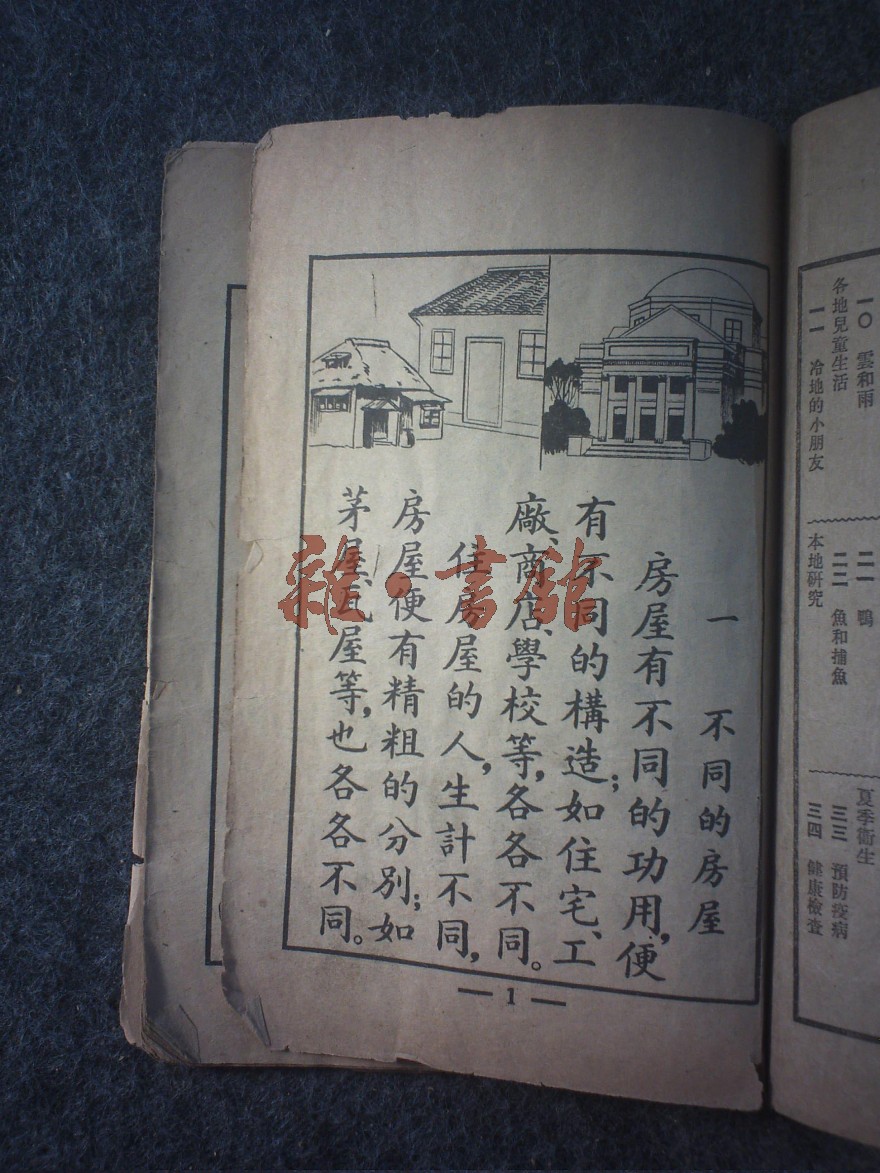 一　不同的房屋
房屋有不同的功用，便
有不同的構造；如住宅、工
廠、商店、學校等，各各不同。
住房屋的人，生計不同，
房屋便有精粗的分別；如
茅屋、瓦屋等，也各各不同。
— 1 —
雜·書館
一〇　雲和雨
各地兒童生活
一一　冷地的小朋友
二一　鴨
二二　魚和捕魚
本地研究
夏季衞生
三三　預防疫病
三四　健康檢查